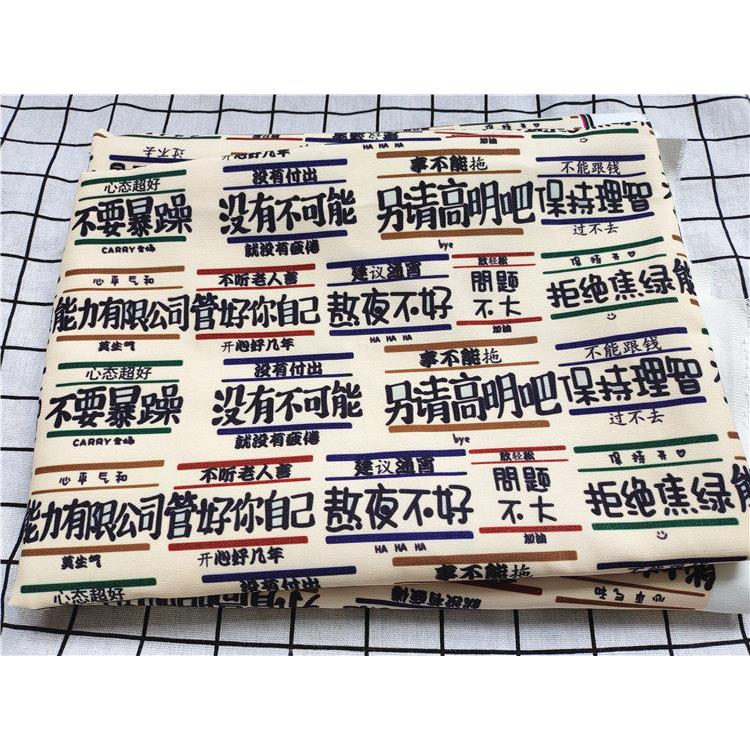 过不去
开心好几年
HA HA HA
加油
心态超好
不要暴躁
CARRY全场
没有付出
没有不可能
就没有疲倦
事不能拖
另请高明吧
bye
不能跟钱
保持理智
过不去
心平气和
能力有限公司
莫生气
不听老人言
管好你自己
开心好几年
建议通宵
熬夜不好
HA HA HA
放轻松
問題
不大
加油
保持开心
拒绝焦绿
能
心态超好
不要暴躁
CARRY全场
没有付出
没有不可能
就没有疲倦
事不能拖
另请高明吧
bye
不能跟钱
保持理智
过不去
心平气和
能力有限公司
莫生气
不听老人言
管好你自己
开心好几年
建议通宵
熬夜不好
HA HA HA
放轻松
問題
不大
加油
保持开
拒绝焦绿
能
心态超好
没有付出
事不能拖
就没有疲倦
bye
心平气和